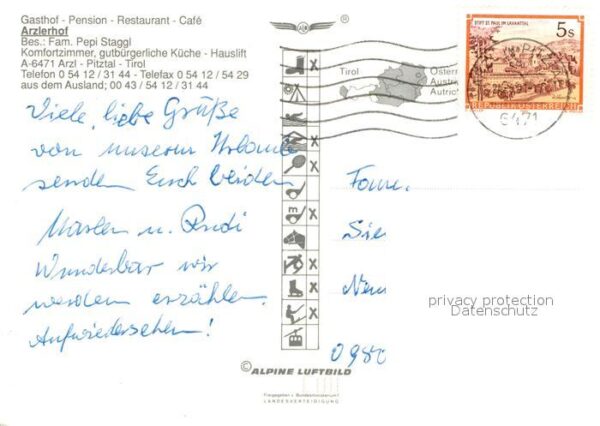 Gasthof - Pension - Restaurant - Café
Arzlerhof
Bes.: Fam. Pepi Staggl
Komfortzimmer, gutbürgerliche Küche - Hauslift
A-6471 Arzl - Pitztal - Tirol
Telefon 0 54 12 / 31 44 - Telefax 0 54 12 / 54 29
aus dem Ausland; 00 43 / 54 12 / 31 44
Viele, liebe Grüße
von unserem Urlaub
senden Euch beiden
Marlen u. Rudi
Wunderbar wir
werden erzählen.
Aufwiedersehen!
Tirol
STIFT ST. PAUL IM LAVANTTAL
5s
REPUBLIK ÖSTERREICH
6471
Fam.
privacy protection
Datenschutz
© ALPINE LUFTBILD
Freigegeben v. Bundesministerium f.
LANDESVERTEIDIGUNG